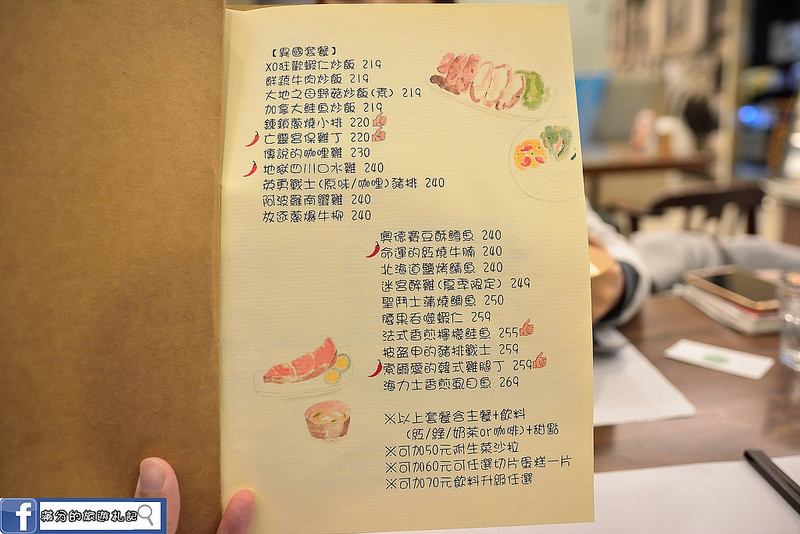 【異國套餐】
XO狂歡蝦仁炒飯 219
鮮蔬牛肉炒飯 219
大地之母野菇炒飯(素) 219
加拿大鮭魚炒飯 219
鍊鎖蔥燒小排 220
亡靈宮保雞丁 220
傳說的咖哩雞 230
地獄四川口水雞 240
英勇戰士(原味/咖哩)豬排 240
阿波羅南蠻雞 240
放逐蔥爆牛柳 240
奧德賽豆酥鱈魚 240
命運的紅燒牛腩 240
北海道鹽烤鯖魚 240
迷宮醉雞(夏季限定) 249
聖鬥士蒲燒鯛魚 250
腰果吞噬蝦仁 259
法式香煎檸檬鮭魚 255
披盔甲的豬排戰士 259
索爾愛的韓式雞腿丁 259
海力士香煎虱目魚 269
※以上套餐含主餐+飲料
(紅/綠/奶茶or咖啡)+甜點
※可加50元附生菜沙拉
※可加60元可任選切片蛋糕一片
※可加70元飲料升級任選
滿分的旅遊札記